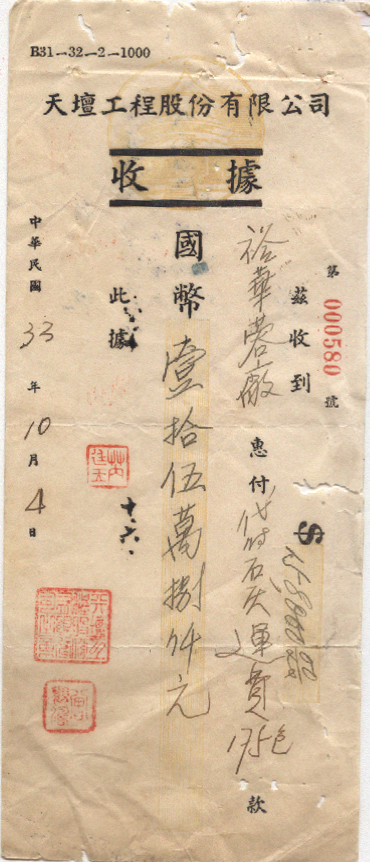 B31—32—2—1000
天壇工程股份有限公司
收據
第000580號
茲收到
裕華蓉廠 惠付 代付石灰運費 175包 款
$158000.00
國幣壹拾伍萬捌仟元
此據
十、六、
中華民國33年10月4日